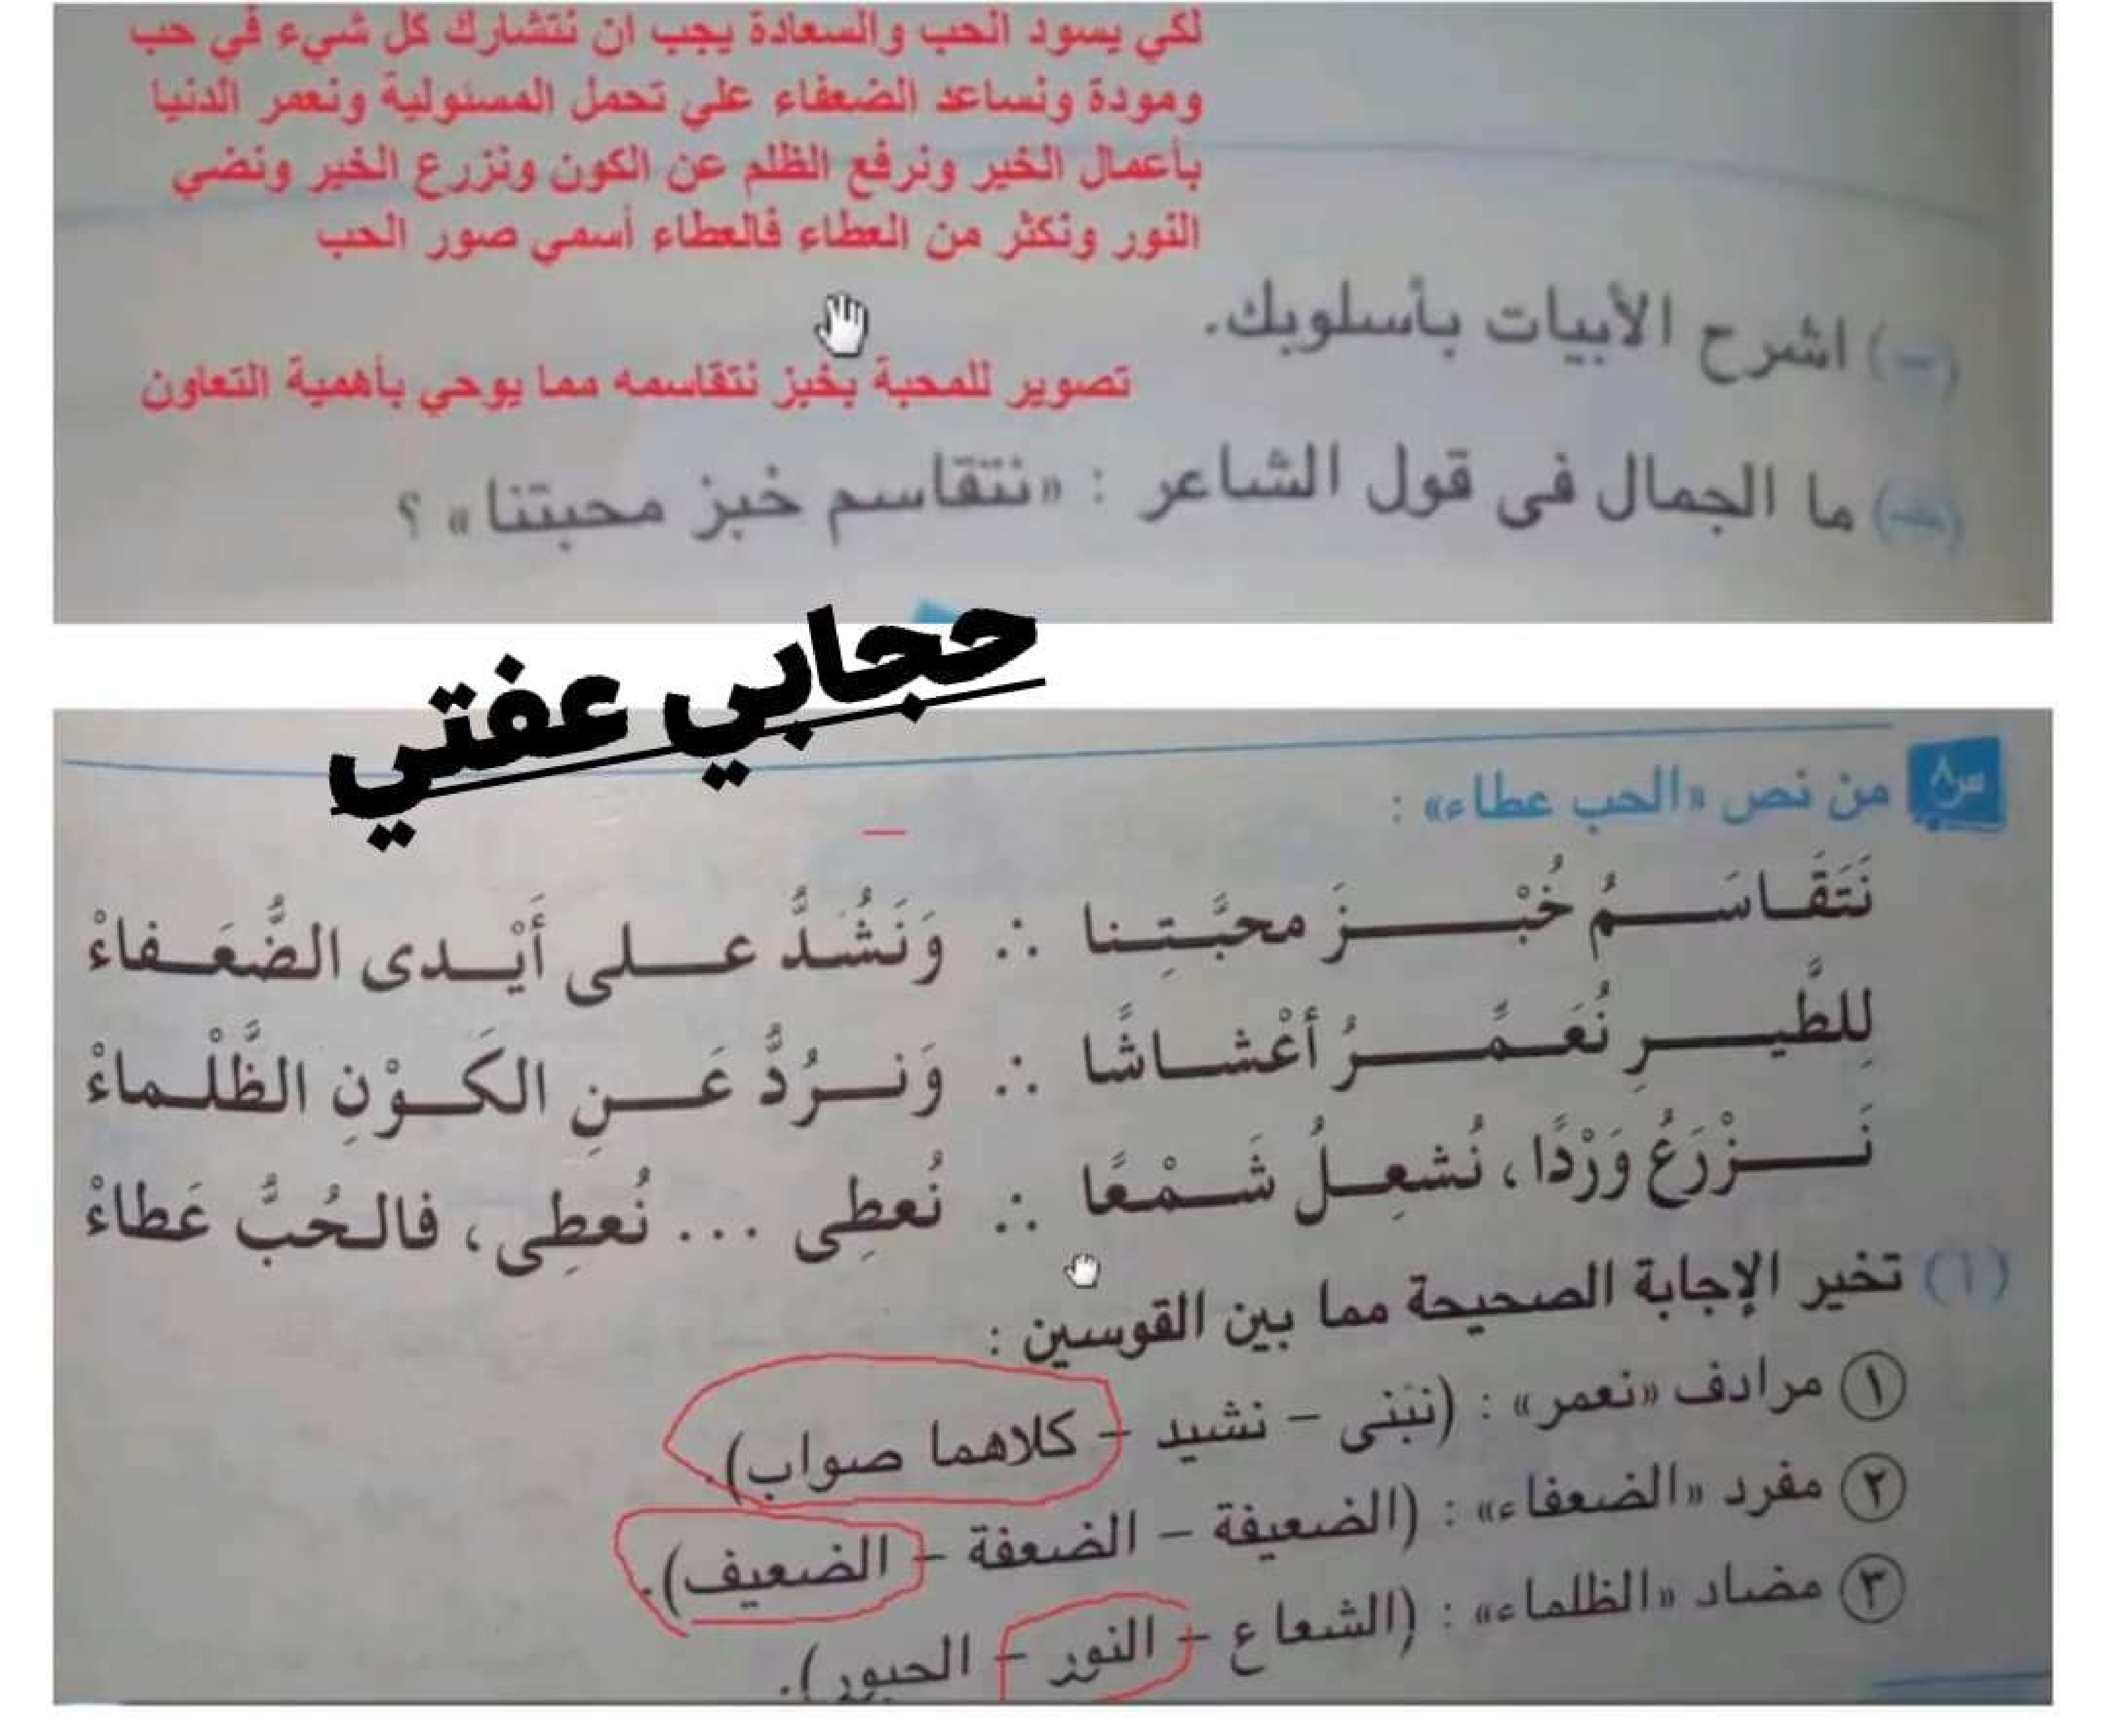 لكي يسود الحب والسعادة يجب ان نتشارك كل شيء في حب
ومودة ونساعد الضعفاء علي تحمل المسئولية ونعمر الدنيا
بأعمال الخير ونرفع الظلم عن الكون ونزرع الخير ونضي
النور ونكثر من العطاء فالعطاء أسمي صور الحب
(ب) اشرح الأبيات بأسلوبك.
تصوير للمحبة بخبز نتقاسمه مما يوحي بأهمية التعاون
(جـ) ما الجمال فى قول الشاعر : «نتقاسم خبز محبتنا» ؟
حجابي عفتي
س٨ من نص «الحب عطاء» :
نَتَقَـاسَــــمُ خُبْــــــزَ محبَّـتِـنا ∴ وَنَشُـدُّ عــلى أَيْــدى الضُّعَـفاءْ
لِلطَّيــــــرِ نُعَـمِّــــــرُ أعْشـاشًا ∴ وَنــرُدُّ عَـــنِ الكَــوْنِ الظَّلْـماءْ
نَــــــزْرَعُ وَرْدًا ، نُشعِـلُ شَـمْـعًا ∴ نُعطِى ... نُعطِى ، فالـحُبُّ عَطاءْ
(أ) تخير الإجابة الصحيحة مما بين القوسين :
١ مرادف «نعمر» : (نبنى – نشيد – كلاهما صواب).
٢ مفرد «الضعفاء» : (الضعيفة – الضعفة – الضعيف).
٣ مضاد «الظلماء» : (الشعاع – النور – الحبور).